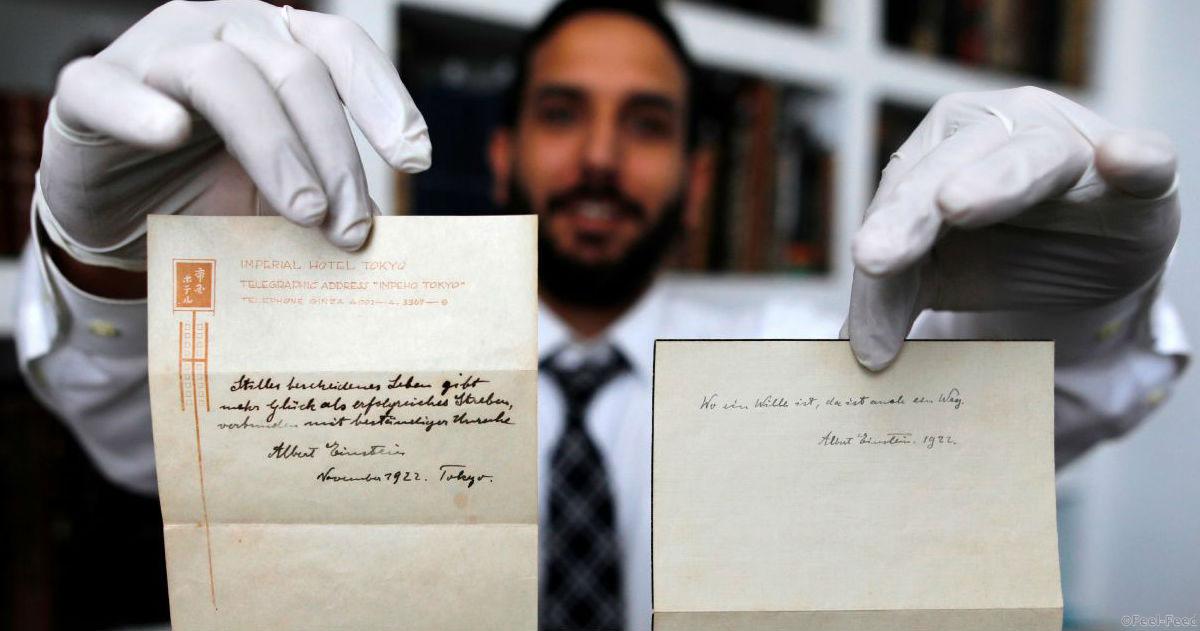 帝国
ホテル
IMPERIAL HOTEL TOKYO
TELEGRAPHIC ADDRESS "IMPEHO TOKYO"
TELEPHONE GINZA
Stilles bescheidenes Leben gibt
mehr Glück als erfolgreiches Streben,
verbunden mit beständiger Unruhe
Albert Einstein
November 1922. Tokyo.
Wo ein Wille ist, da ist auch ein Weg.
Albert Einstein. 1922.
©Feel-Feed